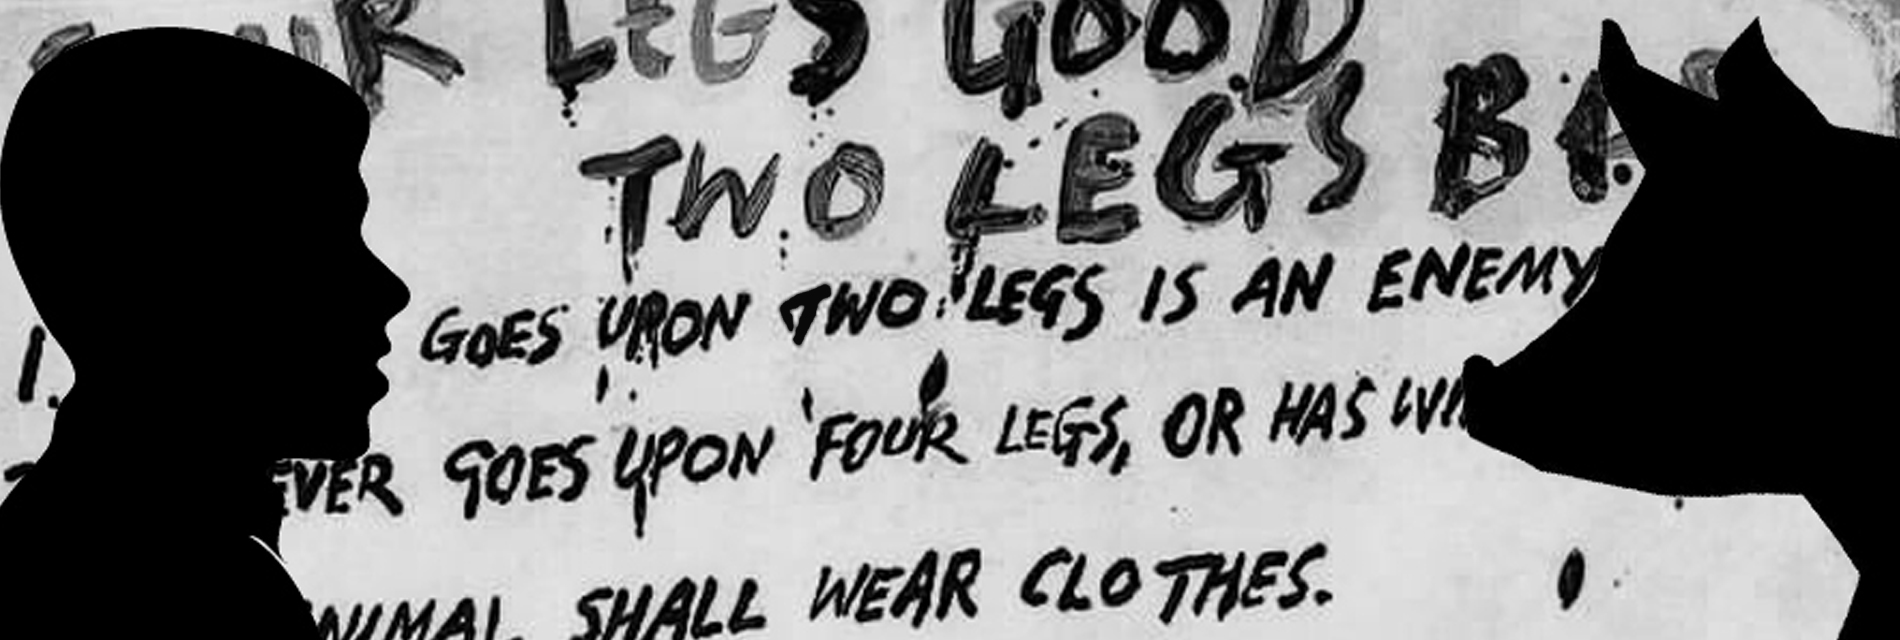 R LEGS GOOD
TWO LEGS
1. GOES UPON TWO LEGS IS AN ENEMY
EVER GOES UPON FOUR LEGS, OR HAS WI
NIMAL SHALL WEAR CLOTHES.